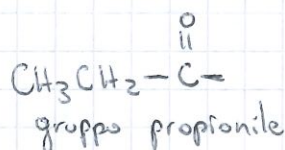 O
||
CH3CH2-C-
gruppo propionile